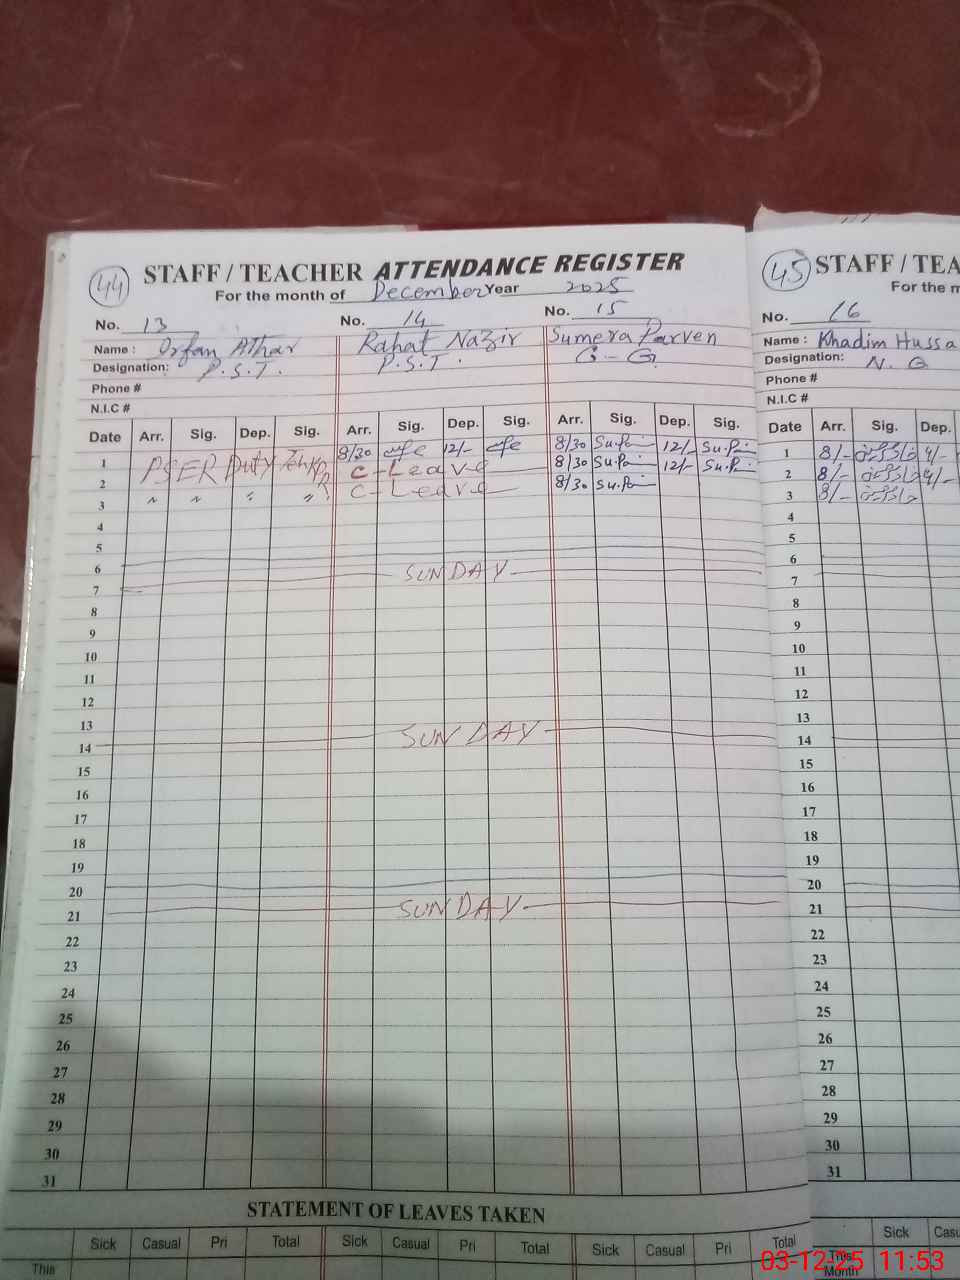 44 STAFF / TEACHER ATTENDANCE REGISTER
For the month of December Year 2025
No. 13 No. 14 No. 15
Name : Irfan Athar Rahat Nazir Sumera Parven
Designation: P.S.T. P.S.T. C-G
Phone #
N.I.C #
Date Arr. Sig. Dep. Sig. Arr. Sig. Dep. Sig. Arr. Sig. Dep. Sig.
1 PSER Duty 8/30 12/- 8/30 12/-
2 C-Leave 8/30 12/-
3 " " " " C-Leave 8/30
4
5
6
7 SUNDAY
8
9
10
11
12
13
14 SUNDAY
15
16
17
18
19
20
21 SUNDAY
22
23
24
25
26
27
28
29
30
31
STATEMENT OF LEAVES TAKEN
Sick Casual Pri Total Sick Casual Pri Total Sick Casual Pri Total
This
45 STAFF / TEA
For the m
No. 16
Name : Khadim Hussa
Designation: N.Q
Phone #
N.I.C #
Date Arr. Sig. Dep.
1 8/- 4/-
2 8/- 4/-
3 8/-
4
5
6
7
8
9
10
11
12
13
14
15
16
17
18
19
20
21
22
23
24
25
26
27
28
29
30
31
Sick Casu
This
Month
03-12-25 11:53